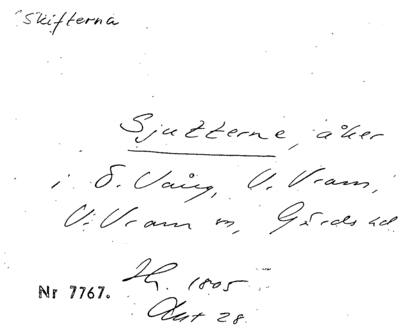 Skifterna
Sjutterne, åker
i Ö. Vång, V. Vram,
V. Vram sn, Gärds hd
Nr 7767. 1805
Akt 28